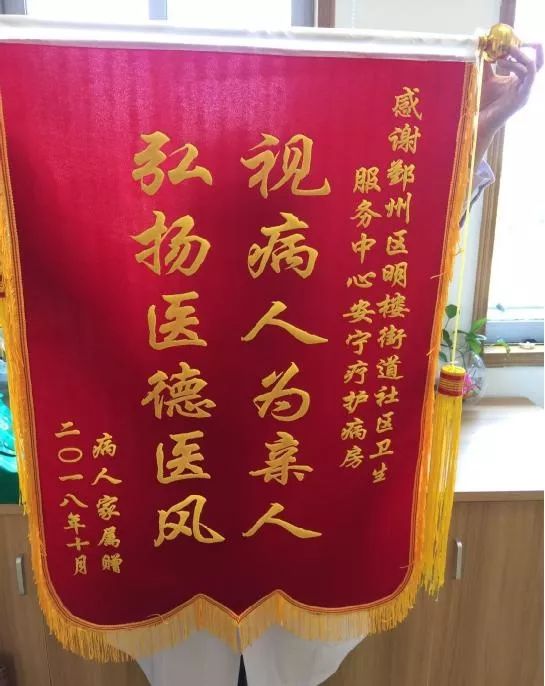 感谢鄞州区明楼街道社区卫生
服务中心安宁疗护病房
视病人为亲人
弘扬医德医风
病人家属赠
二〇一八年十月